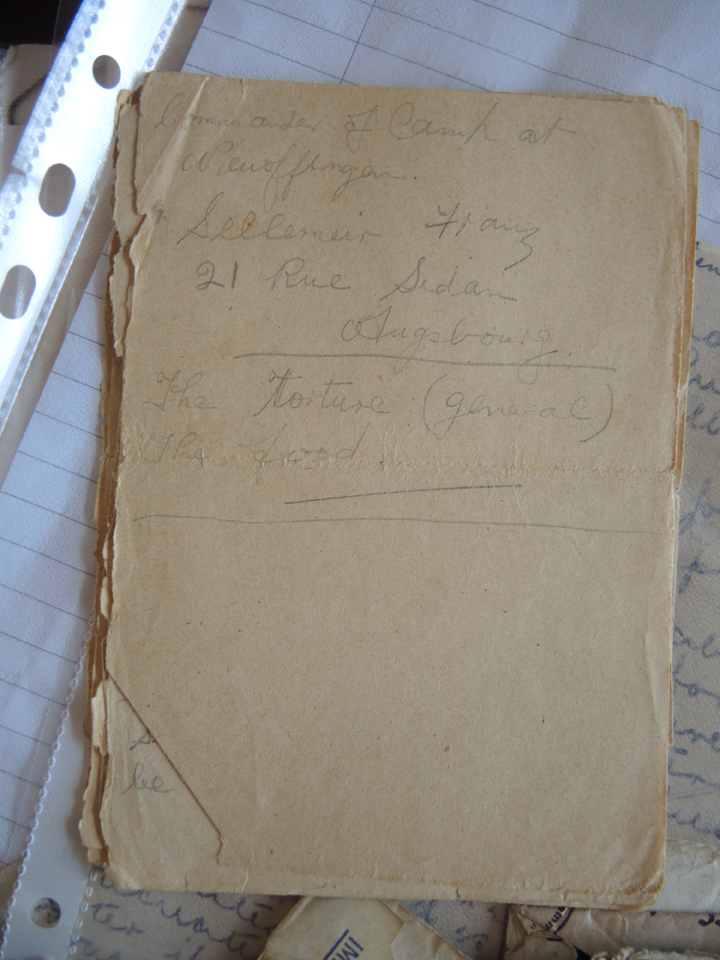 Commander of Camp at
Neuoffingen.
Sellemeir Franz
21 Rue Sedan
Augsbourg
The torture (general)
The food
be